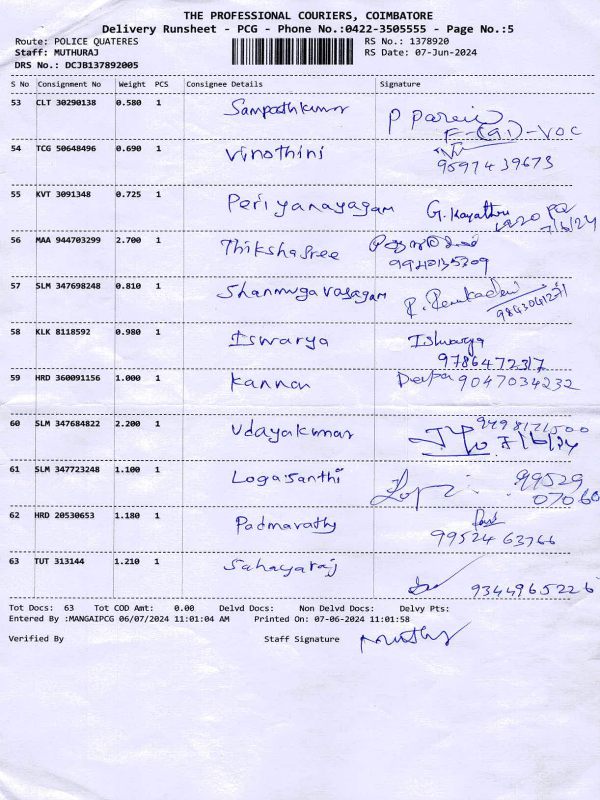 THE PROFESSIONAL COURIERS, COIMBATORE
Delivery Runsheet - PCG - Phone No.:0422-3505555 - Page No.:5
Route: POLICE QUATERES RS No.: 1378920
Staff: MUTHURAJ RS Date: 07-Jun-2024
DRS No.: DCJB137892005
S No Consignment No Weight PCS Consignee Details Signature
53 CLT 30290138 0.580 1 Sampathkumar
F-(91)-VOC
54 TCG 50648496 0.690 1 Vinothini
9597439673
55 KVT 3091348 0.725 1 Periyanayagam G. Kayathri
7/6/24
56 MAA 944703299 2.700 1 Thikshasree
9940135309
57 SLM 347698248 0.810 1 Shanmugavasagam R. Renukadevi
58 KLK 8118592 0.980 1 Iswarya Ishwarya
9786472317
59 HRD 360091156 1.000 1 Kannan Deepa 9047034232
60 SLM 347684822 2.200 1 Udayakumar
7/6/24
61 SLM 347723248 1.100 1 Logasanthi 99529
07060
62 HRD 20530653 1.180 1 Padmavathy
99524 63766
63 TUT 313144 1.210 1 Sahayaraj
9344965226
Tot Docs: 63 Tot COD Amt: 0.00 Delvd Docs: Non Delvd Docs: Delvy Pts:
Entered By :MANGAIPCG 06/07/2024 11:01:04 AM Printed On: 07-06-2024 11:01:58
Verified By Staff Signature